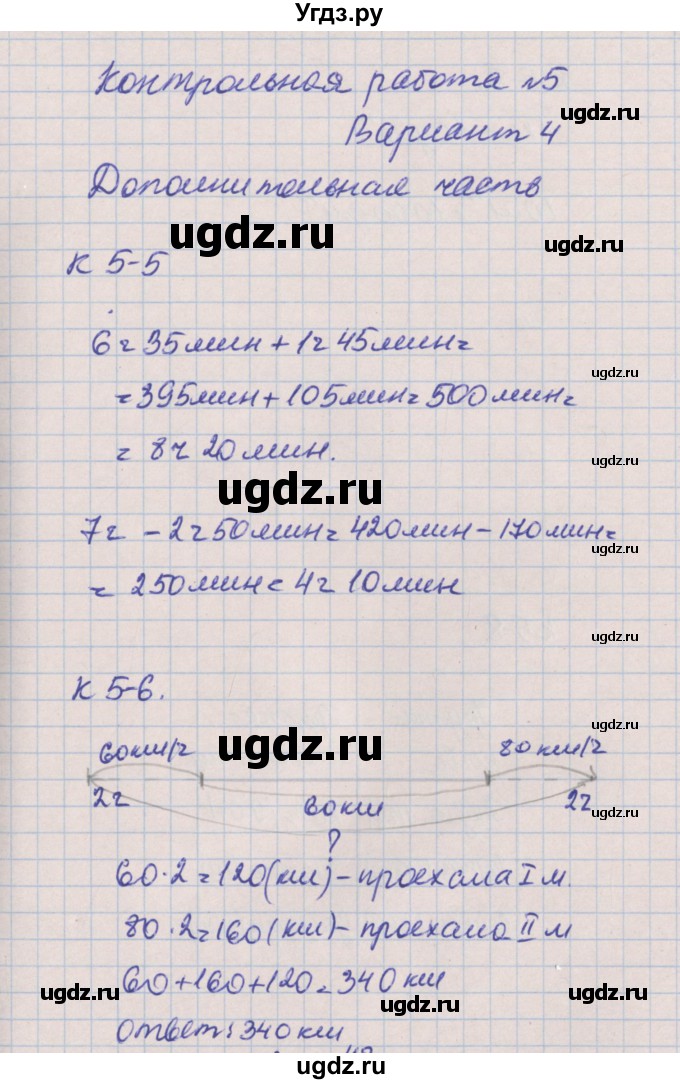 Угдз.ру
Контрольная работа №5
ugdz.ru
Вариант 4
Дополнительная часть
ugdz.ru
ugdz.ru
К 5-5
6ч 35мин + 1ч 45мин=
ugdz.ru
= 395мин + 105мин= 500мин=
= 8ч 20мин.
ugdz.ru
ugdz.ru
7ч - 2ч 50мин= 420мин - 170мин=
ugdz.ru
= 250мин = 4ч 10мин
ugdz.ru
К 5-6.
ugdz.ru
ugdz.ru
60км/ч 80км/ч
2ч 60км 2ч
ugdz.ru
?
60·2=120(км)-проехала I м.
80·2=160(км)-проехала II м
60+160+120=340км
ugdz.ru
ugdz.ru
Ответ: 340км
ugdz.ru